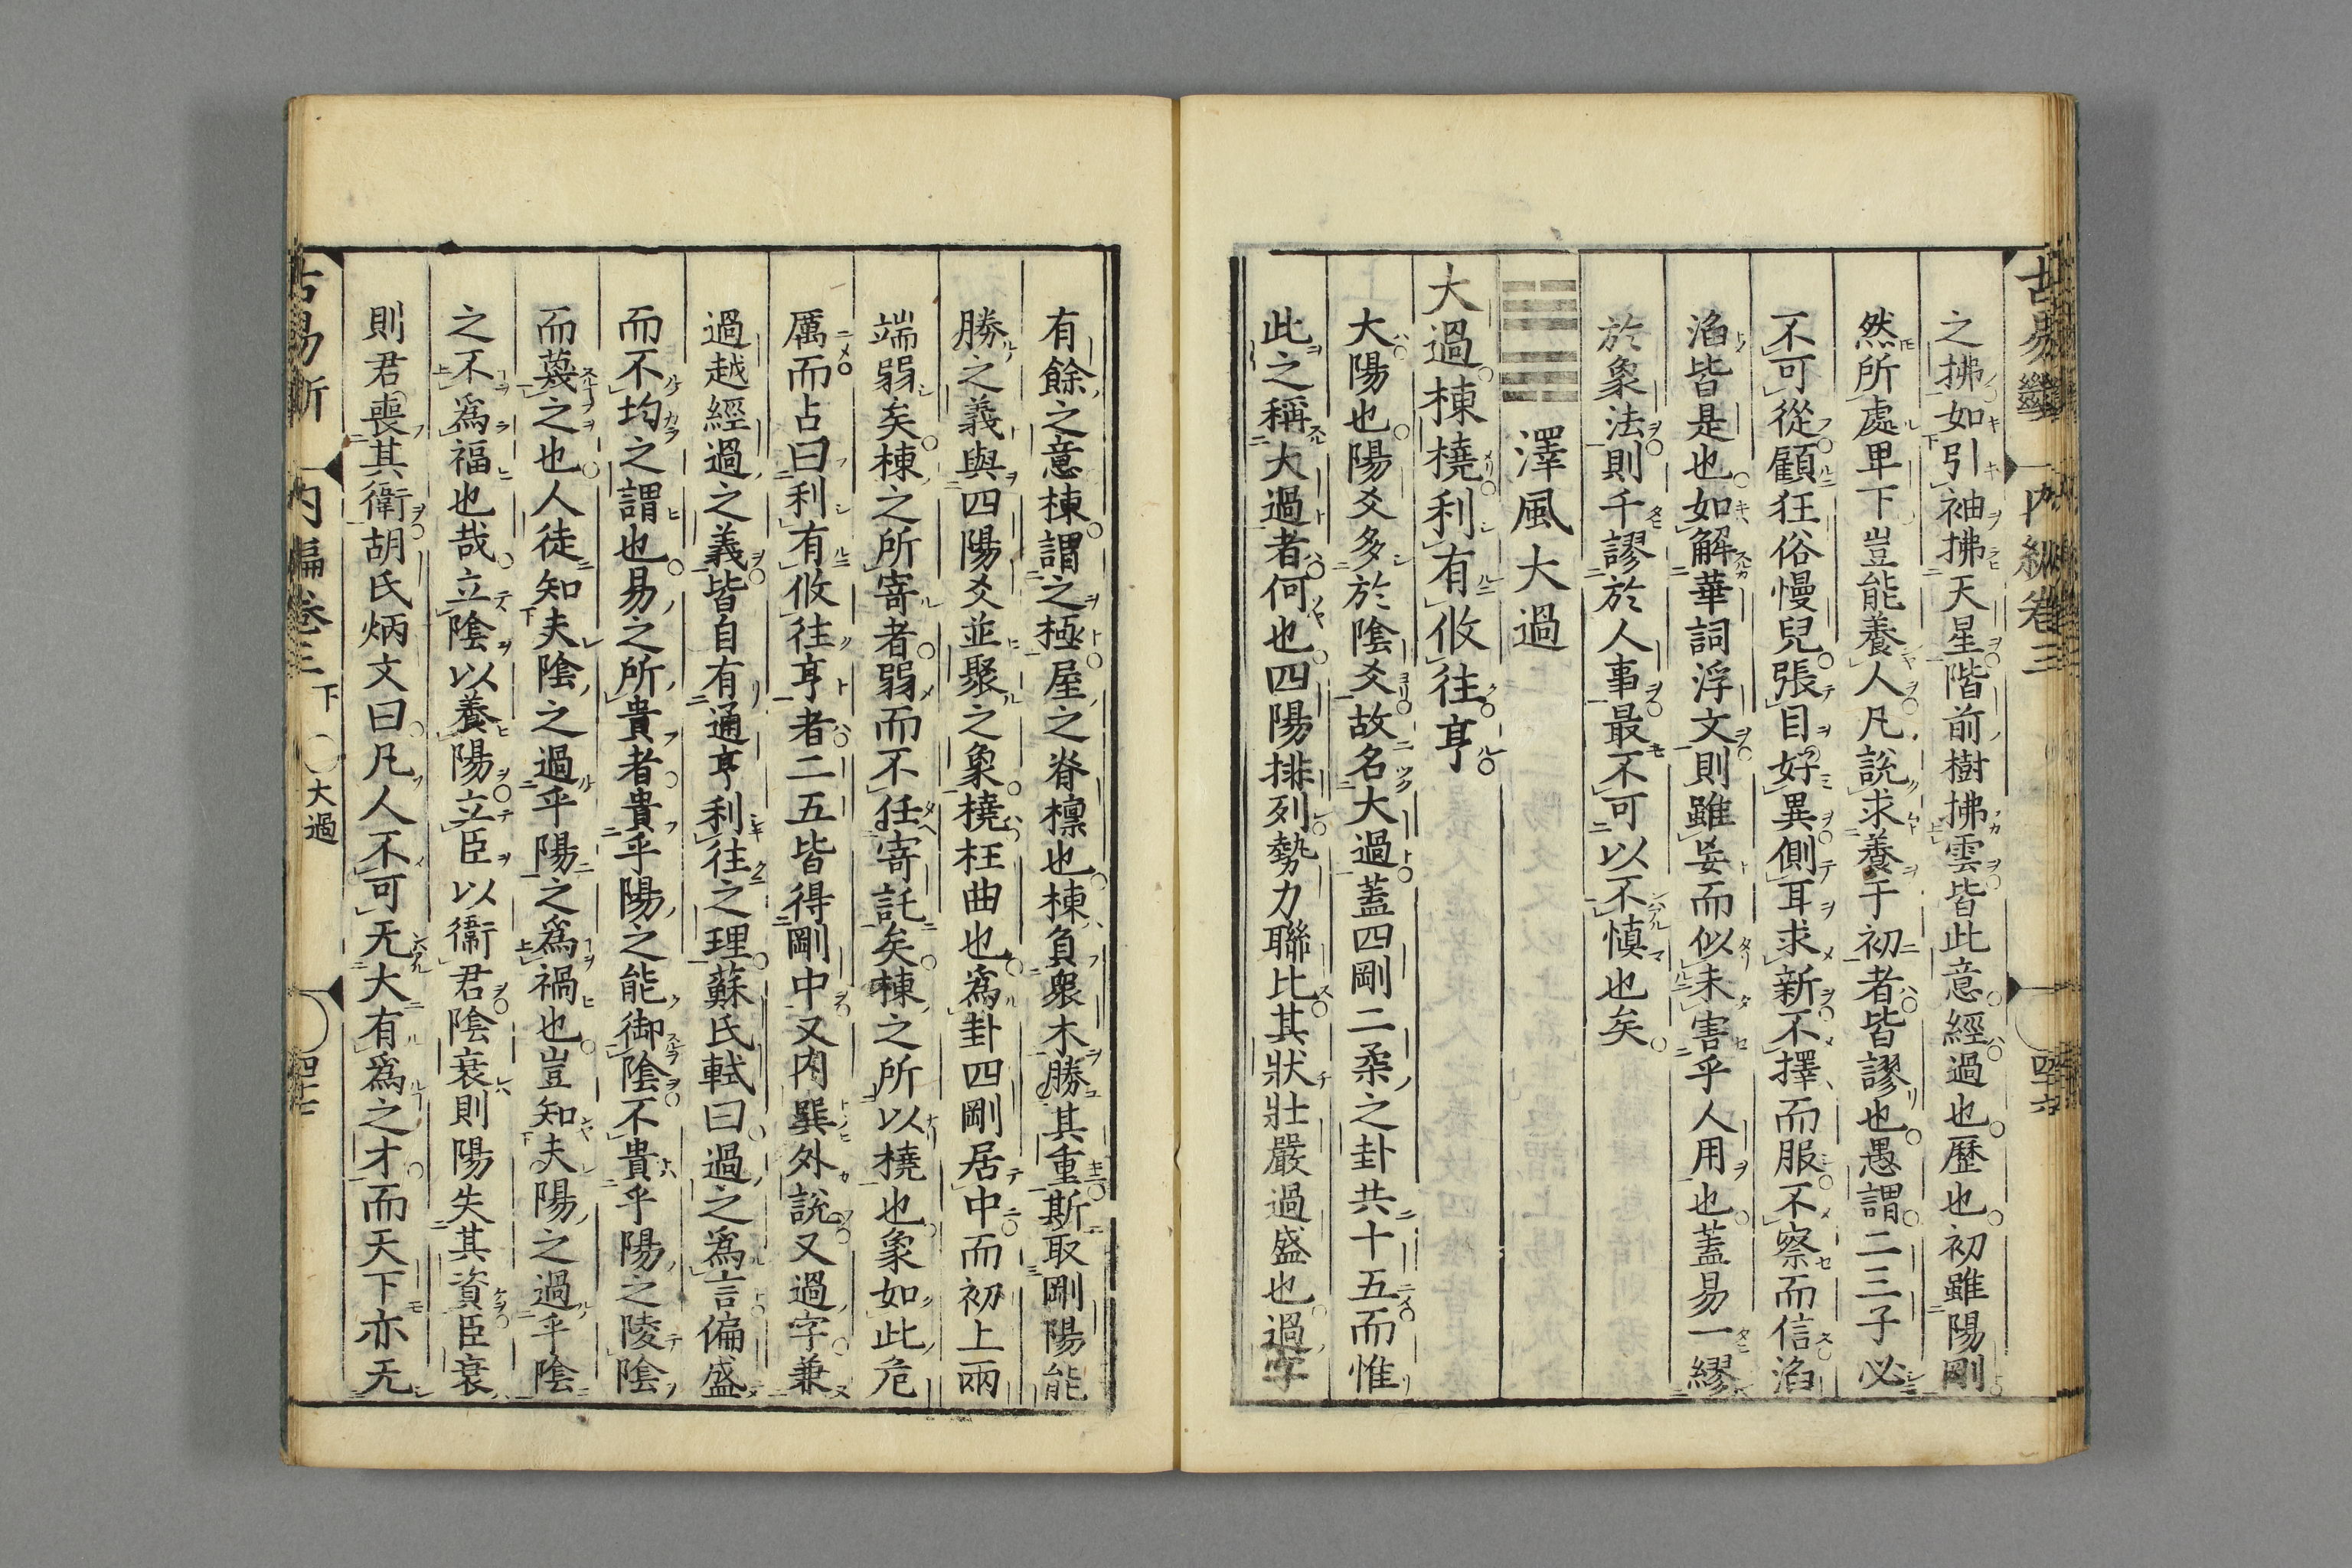 之拂如引袖拂天星階前樹拂雲皆此意經過也歷也初雖陽剛
然所處卑下豈能養人凡說求養于初者皆謬也愚謂二三子必
不可從顧狂俗慢兒張目好異側耳求新不擇而服不察而信滔
滔皆是也如解華詞浮文則雖妄而似未害乎人用也蓋易一繆
於象法則千謬於人事最不可以不慎也矣
澤風大過
大過棟橈利有攸往亨
大陽也陽爻多於陰爻故名大過蓋四剛二柔之卦共十五而惟
此之稱大過者何也四陽排列勢力聯比其狀壯嚴過盛也過字
有餘之意棟謂之極屋之脊檁也棟負衆木勝其重斯取剛陽能
勝之義與四陽爻並聚之象橈枉曲也為卦四剛居中而初上兩
端弱矣棟之所寄者弱而不任寄託矣棟之所以橈也象如此危
厲而占曰利有攸往亨者二五皆得剛中又内巽外說又過字兼
過越經過之義皆自有通亨利往之理蘇氏軾曰過之為言偏盛
而不均之謂也易之所貴者貴乎陽之能御陰不貴乎陽之陵陰
而蔑之也人徒知夫陰之過乎陽之為禍也豈知夫陽之過乎陰
之不為福也哉立陰以養陽立臣以衞君陰衰則陽失其資臣衰
則君喪其衛胡氏炳文曰凡人不可无大有為之才而天下亦无
古易斷 内編卷三 下 大過 四十七
内編卷三 四十六